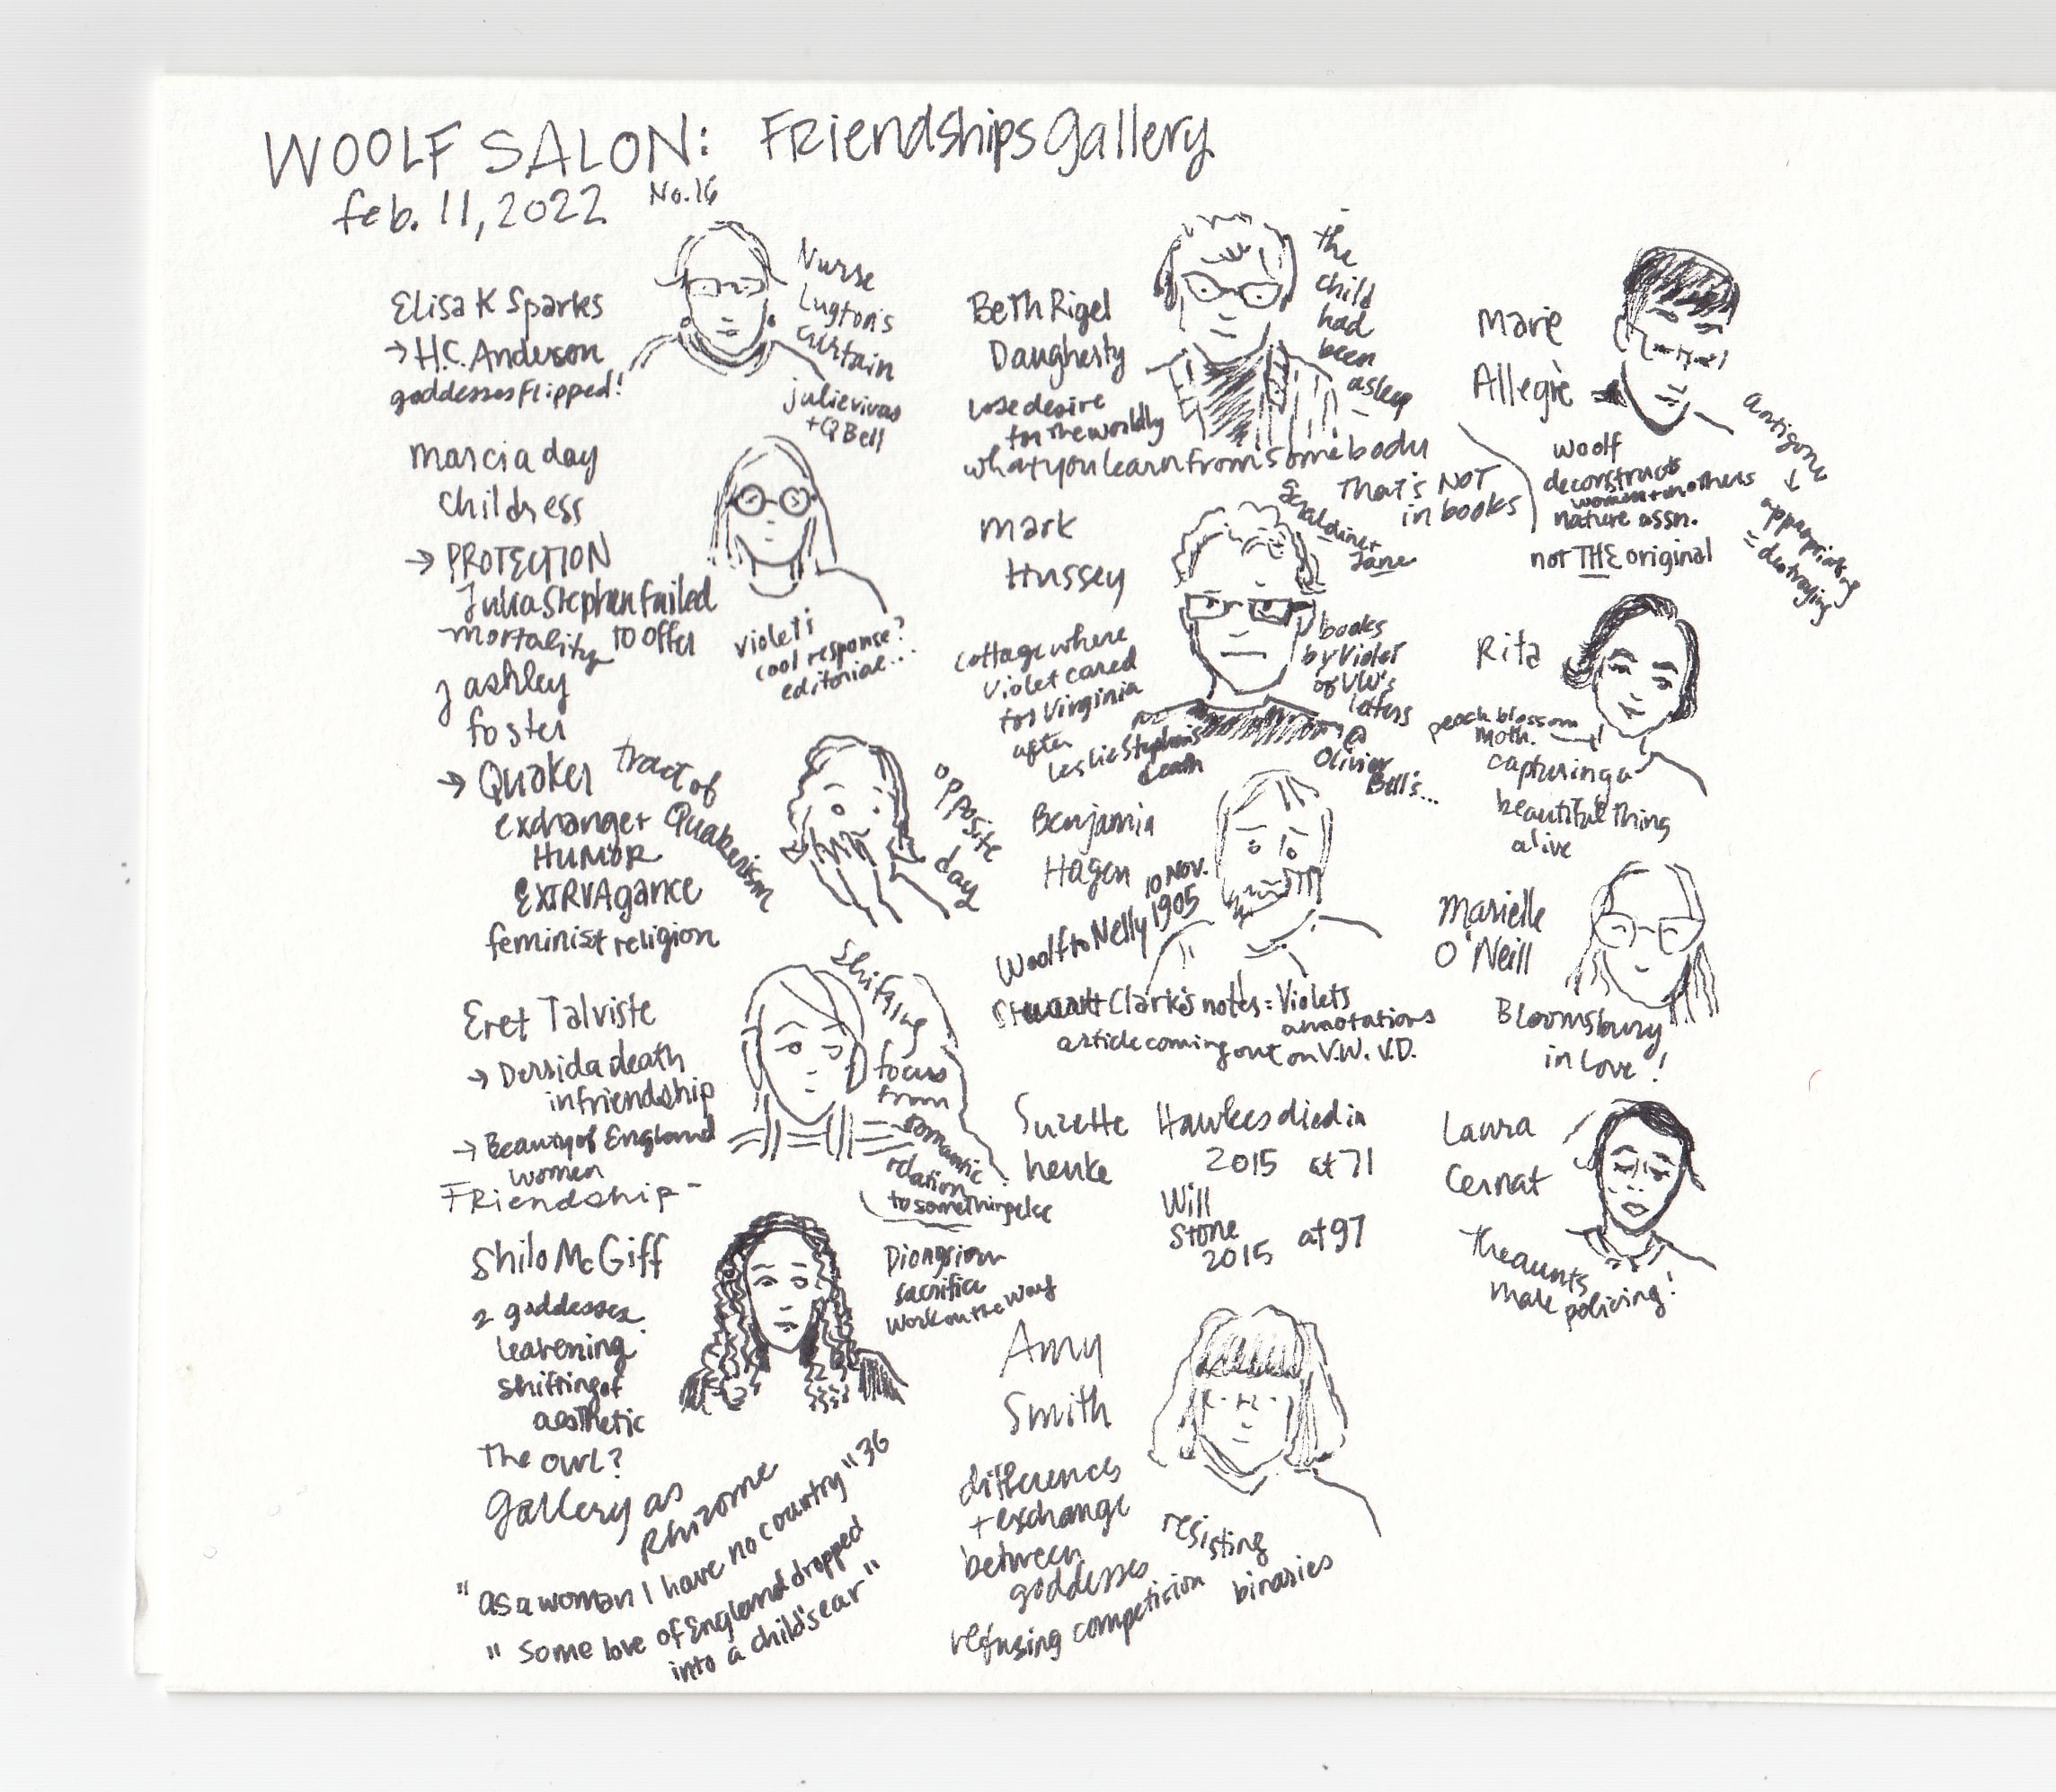 WOOLF SALON: Friendships Gallery
No. 16
feb. 11, 2022
Elisa K Sparks
→ H.C. Anderson
goddesses flipped!
Nurse
Lugton's
Curtain
julie vivas
+ Q Bell
marcia day
childress
→ PROTECTION
Julia Stephen failed
to offer
mortality
violet's
cool response?
editorial...
J ashley
foster
→ Quaker
exchange +
HUMOR
EXTRVAgance
feminist religion
tract of
Quakerism
opposite
day
Eret Talviste
→ Derrida death
in friendship
→ Beauty of England
women
Friendship -
shifting
focus
from
romantic
relation
to something else
Shilo McGiff
2 goddesses
leavening
shifting of
aesthetic
The owl?
Dionysian
sacrifice
work on the way
gallery as
Rhizome
"as a woman I have no country" 36
"Some love of England dropped
into a child's ear"
Beth Rigel
Daugherty
lose desire
for the worldly
what you learn from somebody
That's NOT
in books
the
child
had
been
asleep
mark
Hussey
Geraldine +
Jane
cottage where
Violet cared
for Virginia
after
Leslie Stephen's
death
books
by Violet
of VW's
letters
@
Olivier
Bell's...
Benjamin
Hagen
10 Nov.
1905
Woolf to Nelly
Stewart Clark's notes: Violets
annotations
article coming out on V.W. V.D.
Suzette
henke
Hawkes died in
2015 at 71
Will
Stone
2015 at 97
Amy
Smith
differences
+ exchange
between
goddesses
refusing competition
resisting
binaries
Marie
Allegre
woolf
deconstructs
women + mothers
nature assn.
not THE original
antigone
↓
appropriating
= destroying
Rita
peach blossom
moth.
capturing a
beautiful thing
alive
Marielle
O'Neill
Bloomsbury
in love!
Laura
Cernat
The aunts
male policing!